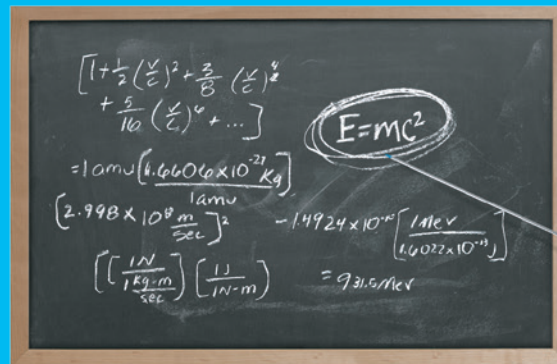 [1+½(v/c)²+3/8 (v/c)⁴
+ 5/16 (v/c)⁶ + ...]
E=mc²
=1amu(1.6606×10⁻²⁷Kg/1amu)
[2.998 × 10⁸ m/sec]²
-1.4924×10⁻¹⁰[1Mev/1.6022×10⁻¹³J]
[[1N/1Kg-m/sec](1J/1N-m)
=931.5Mev